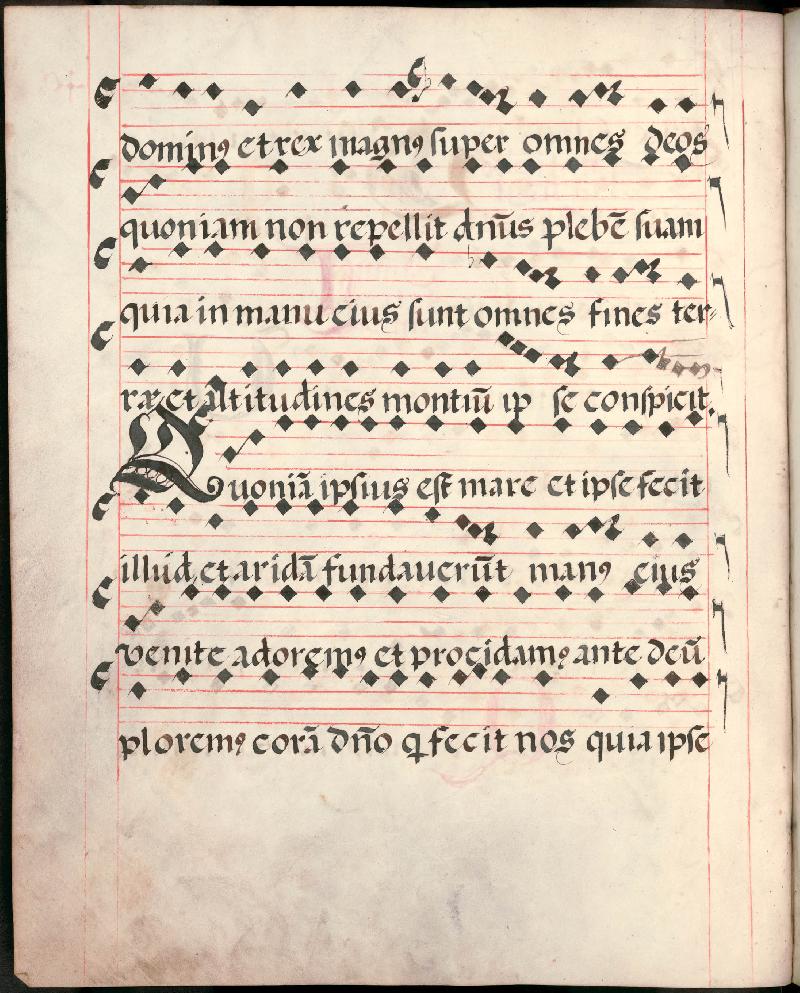 dominꝰ et rex magnꝰ super omnes deos
quoniam non repellit dn̄s plebē suam
quia in manu eius sunt omnes fines ter-
ræ et altitudines montiū ip se conspicit.
Quoniā ipsius est mare et ipse fecit
illud et aridā fundauerūt manꝰ eius
venite adoremꝰ et procidamꝰ ante deū
ploremꝰ corā dn̄o q̄ fecit nos quia ipse